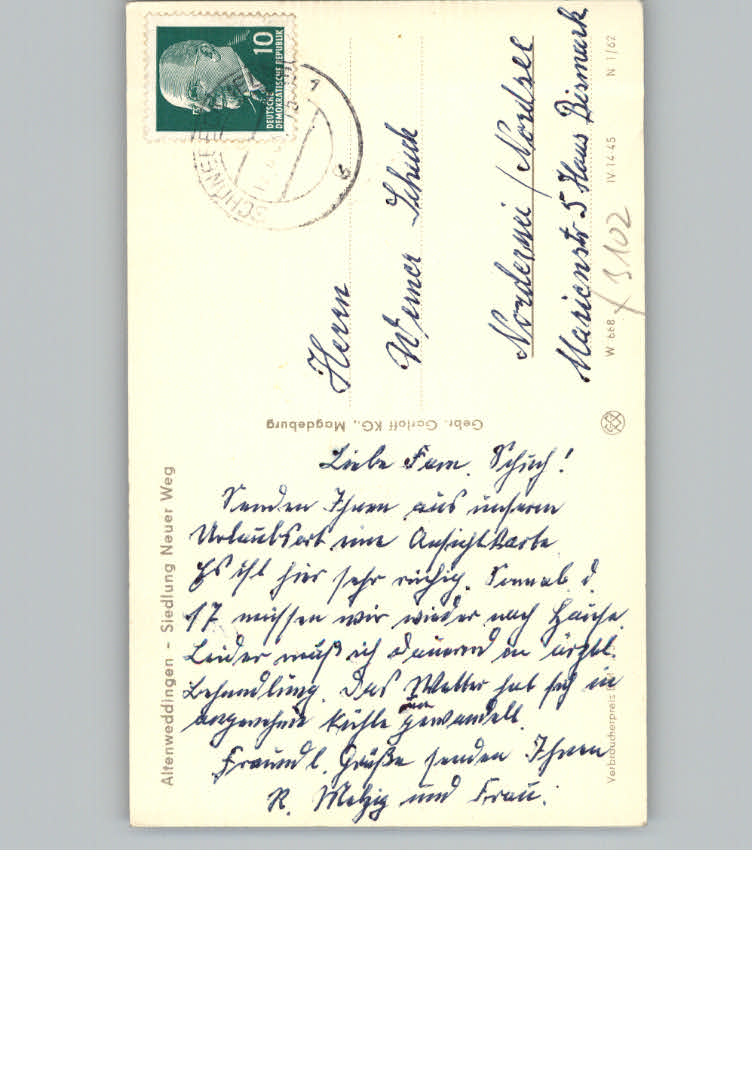 10
DEUTSCHE
DEMOKRATISCHE REPUBLIK
Herrn
Werner Schuch
Nordernei / Nordsee
Marienstr 5 Haus Bismark
3102
W 668 IV 14 45 N 1/62
Gebr. Garloff KG., Magdeburg
Altenweddingen – Siedlung Neuer Weg
Verbraucherpreis
Liebe Fam. Schuch!
Senden Ihnen aus unserem
Urlaubsort eine Ansichtskarte
Es ist hier sehr ruhig. Sonnab. d.
17 müssen wir wieder nach Hause.
Leider muß ich dauernd in ärztl.
Behandlung. Das Wetter hat sich in
angenehme Kühle umgewandelt.
Freundl. Grüße senden Ihnen
R. Metzig und Frau.